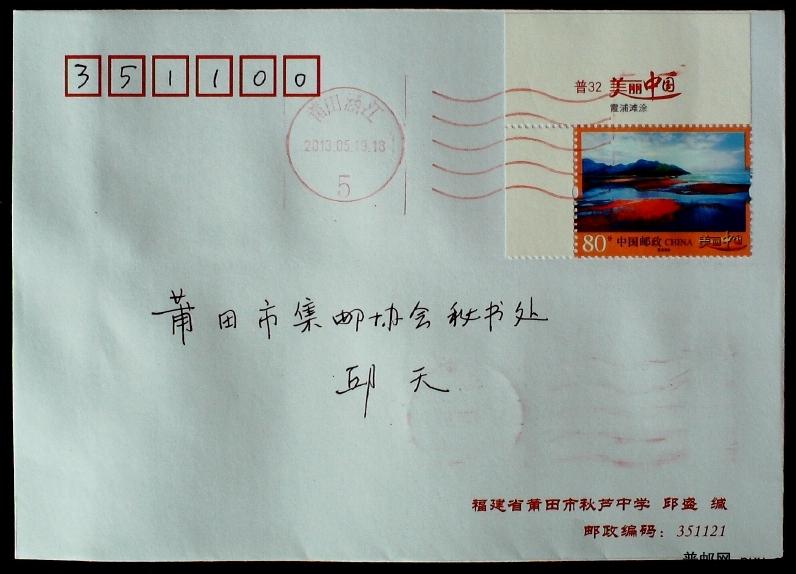 351100
普32 美丽中国
霞浦滩涂
莆田涵江
2013.05.19.18
5
80分 中国邮政 CHINA 美丽中国
莆田市集邮协会秘书处
邱天
福建省莆田市秋芦中学 邱盛 缄
邮政编码：351121
普邮网